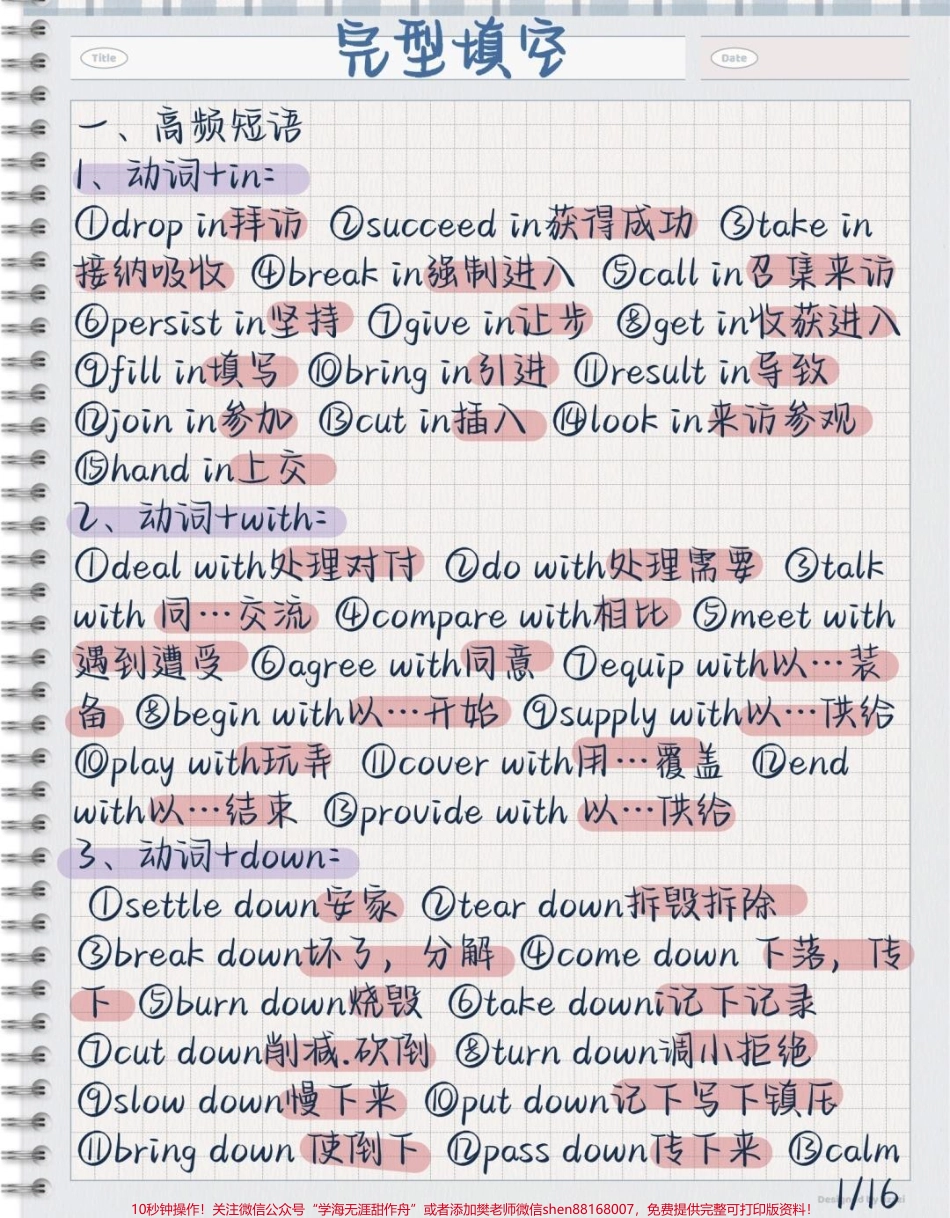 完型填空
Title
Date
一、高频短语
1、动词+in:
①drop in拜访 ②succeed in获得成功 ③take in
接纳吸收 ④break in强制进入 ⑤call in召集来访
⑥persist in坚持 ⑦give in让步 ⑧get in收获进入
⑨fill in填写 ⑩bring in引进 ⑪result in导致
⑫join in参加 ⑬cut in插入 ⑭look in来访参观
⑮hand in上交
2、动词+with:
①deal with处理对付 ②do with处理需要 ③talk
with 同…交流 ④compare with相比 ⑤meet with
遇到遭受 ⑥agree with同意 ⑦equip with以…装
备 ⑧begin with以…开始 ⑨supply with以…供给
⑩play with玩弄 ⑪cover with用…覆盖 ⑫end
with以…结束 ⑬provide with 以…供给
3、动词+down:
①settle down安家 ②tear down拆毁拆除
③break down坏了，分解 ④come down 下落，传
下 ⑤burn down烧毁 ⑥take downi记下记录
⑦cut down削减.砍倒 ⑧turn down调小拒绝
⑨slow down慢下来 ⑩put down记下写下镇压
⑪bring down 使倒下 ⑫pass down传下来 ⑬calm
1/16
10秒钟操作！关注微信公众号“学海无涯甜作舟”或者添加樊老师微信shen88168007，免费提供完整可打印版资料！